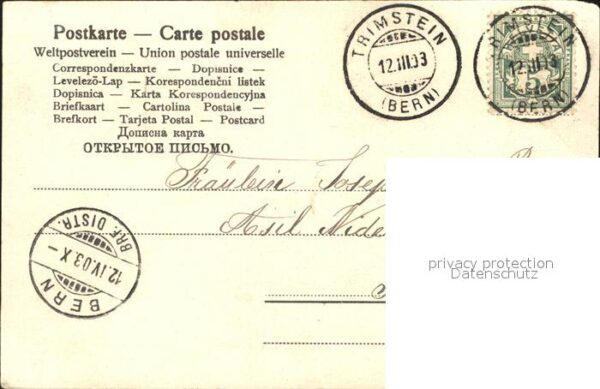 Postkarte — Carte postale
Weltpostverein — Union postale universelle
Correspondenzkarte — Dopisnice —
Levelező-Lap — Korespondenční listek
Dopisnica — Karta Korespondencyjna
Briefkaart — Cartolina Postale —
Brefkort — Tarjeta Postal — Postcard
Дописна карта
ОТКРЫТОЕ ПИСЬМО.
TRIMSTEIN
12.III.03
(BERN)
TRIMSTEIN
12.III.03
(BERN)
5
Fräulein
Asil
BRF. DISTR.
12.IV.03.X —
BERN
privacy protection
Datenschutz